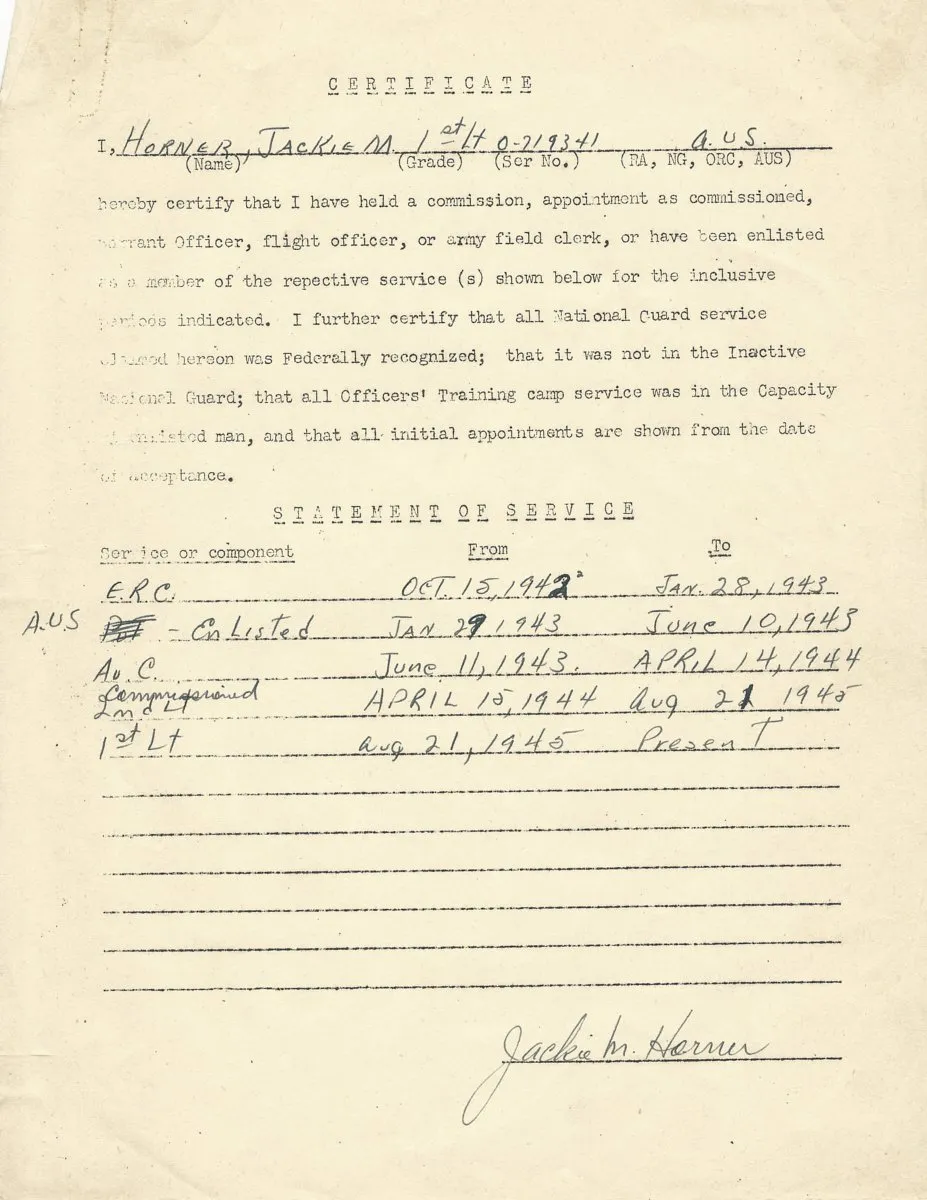 CERTIFICATE
I, HORNER, JACKIE M. 1st Lt O-719341 A.US.
(Name) (Grade) (Ser No.) (RA, NG, ORC, AUS)
hereby certify that I have held a commission, appointment as commissioned,
warrant Officer, flight officer, or army field clerk, or have been enlisted
as a member of the repective service (s) shown below for the inclusive
periods indicated. I further certify that all National Guard service
claimed hereon was Federally recognized; that it was not in the Inactive
National Guard; that all Officers' Training camp service was in the Capacity
of enlisted man, and that all initial appointments are shown from the date
of acceptance.
STATEMENT OF SERVICE
Service or component From To
E.R.C. OCT. 15, 1942 JAN. 28, 1943
A.U.S - EnListed JAN 29 1943 June 10, 1943
Av. C. June 11, 1943. APRIL 14, 1944
Commissioned
2nd LT APRIL 15, 1944 Aug 21 1945
1st Lt Aug 21, 1945 PresenT
Jackie M. Horner